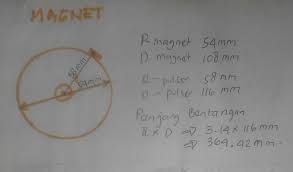 MAGNET
58mm
54mm
R magnet 54mm
D magnet 108mm
R-pulser 58mm
D-pulser 116mm
Panjang Bentangan
π x D ⇒ 3.14 x 116mm
⇒ 364.42mm